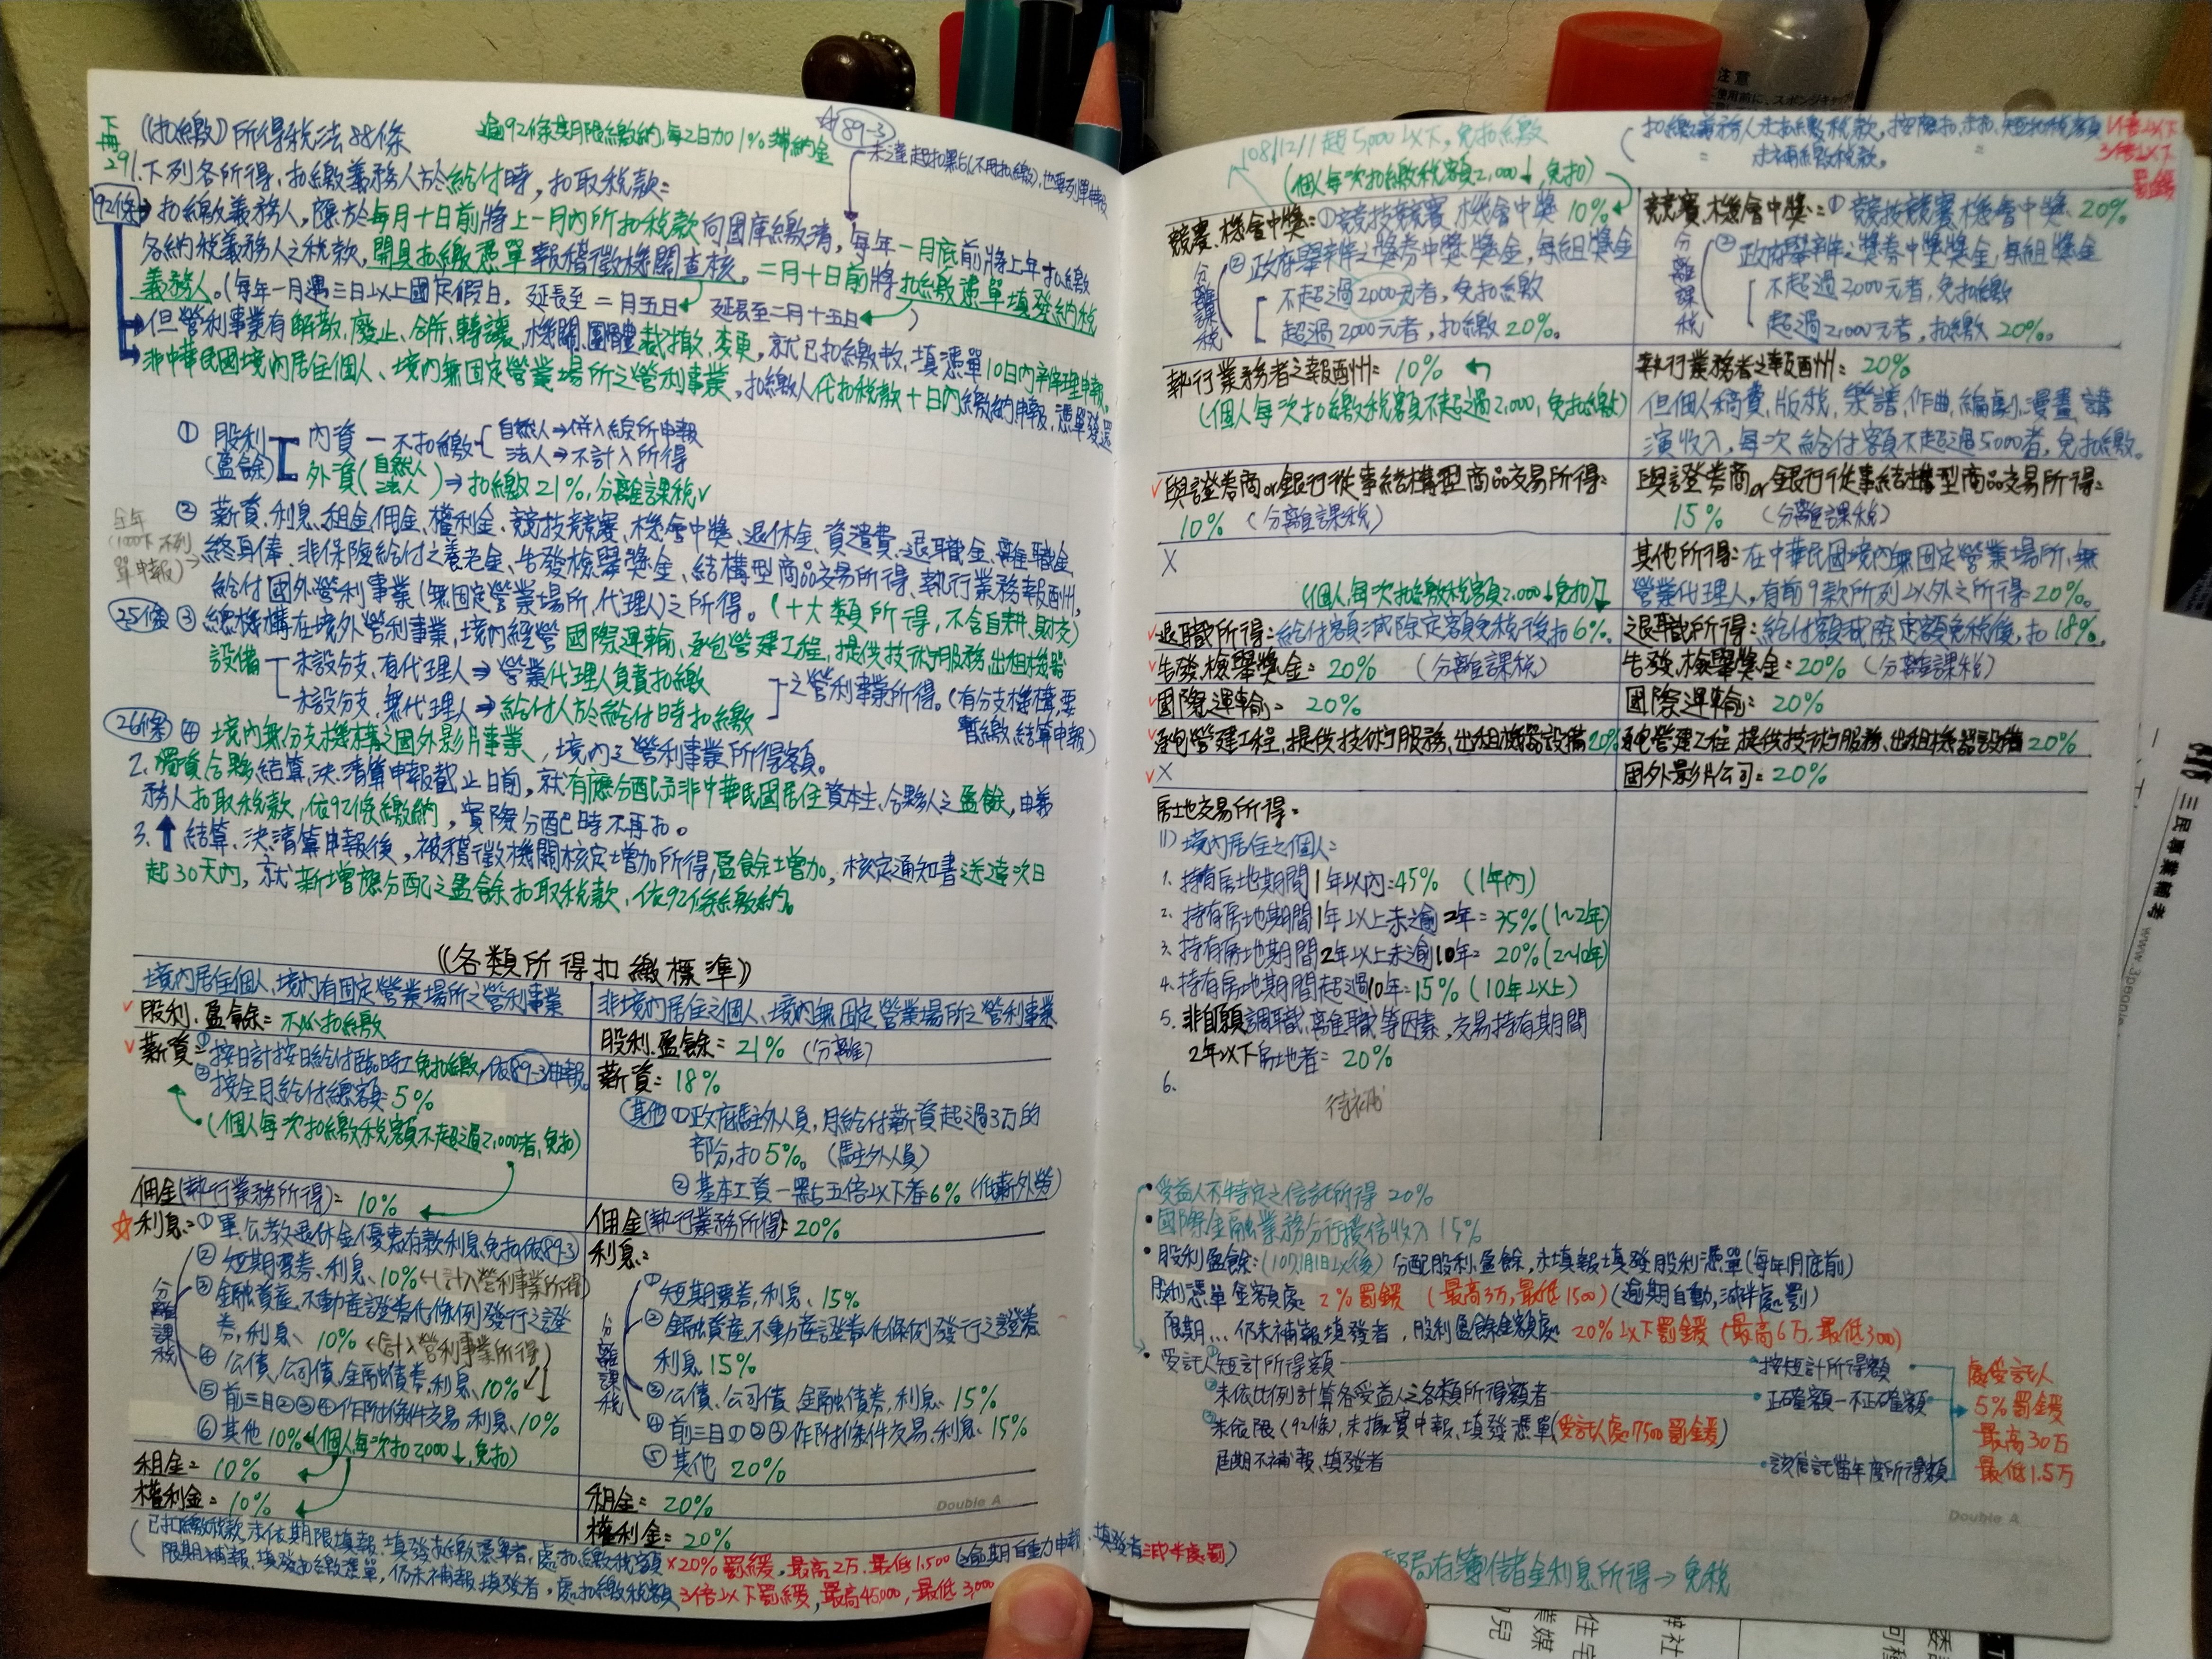 下冊29
《扣繳》所得稅法88條
逾92條期限繳納,每2日加1%滯納金
☆89-3
未達起扣點(不用扣繳),也要列單申報
1.下列各所得,扣繳義務人於給付時,扣取稅款:
92條→扣繳義務人,應於每月十日前將上一月內所扣稅款向國庫繳清,每年一月底前將上年扣繳
各納稅義務人之稅款,開具扣繳憑單報稽徵機關查核。二月十日前將扣繳憑單填發納稅
義務人。(每年一月遇三日以上國定假日,延長至二月五日 延長至二月十五日)
但營利事業有解散、廢止、合併、轉讓、機關、團體裁撤、變更,就已扣繳數,填憑單10日內辦理申報。
非中華民國境內居住個人、境內無固定營業場所之營利事業,扣繳人代扣稅款十日內繳納申報,憑單發還
① 股利(盈餘) 內資—不扣繳 自然人→併入綜所申報
法人→不計入所得
外資(自然人 法人)→扣繳21%,分離課稅✓
② 薪資、利息、租金、佣金、權利金、競技競賽、機會中獎、退休金、資遣費、退職金、離職金、
全年1000下不列單申報)
終身俸、非保險給付之養老金、告發檢舉獎金、結構型商品交易所得、執行業務報酬,
給付國外營利事業(無固定營業場所、代理人)之所得。(十大類所得,不含自耕、財交)
25條 ③ 總機構在境外營利事業,境內經營國際運輸、承包營建工程,提供技術服務,出租機器
設備 未設分支,有代理人→營業代理人負責扣繳
未設分支,無代理人→給付人於給付時扣繳
之營利事業所得。(有分支機構,要
暫繳、結算申報)
26條 ④ 境內無分支機構之國外影片事業,境內之營利事業所得額。
2. 獨資合夥,結算、決、清算申報截止日前,就有應分配予非中華民國居住資本主、合夥人之盈餘,由義
務人扣取稅款,依92條繳納,實際分配時不再扣。
3.↑結算、決清算申報後,被稽徵機關核定增加所得,盈餘增加,核定通知書送達次日
起30天內,就新增應分配之盈餘扣取稅款,依92條繳納。
《各類所得扣繳標準》
境內居住個人、境內有固定營業場所之營利事業
非境內居住之個人、境內無固定營業場所之營利事業
✓股利、盈餘=不必扣繳
股利、盈餘=21% (分離)
✓薪資=①按日計按日給付臨時工免扣繳,依89-3申報。
②按全月給付總額=5%
(個人每次扣繳稅額不超過2,000者,免扣)
薪資=18%
其他 ①政府駐外人員,月給付薪資超過3万的
部分,扣5%。(駐外人員)
②基本工資一點五倍以下者6% (低薪外勞)
佣金(執行業務所得)=10%
佣金(執行業務所得)=20%
☆利息=①軍、公、教退休金優惠存款利息免扣(依89-3)
②短期票券、利息、10%←(計入營利事業所得)
③金融資產、不動產證券化條例發行之證
券、利息、10%←(計入營利事業所得)
④公債、公司債、金融債券、利息、10%
⑤前三目②③④作附條件交易、利息、10%
⑥其他10%(個人每次扣2,000↓,免扣)
分離課稅
利息:
①短期票券,利息、15%
②金融資產、不動產證券化條例發行之證券、
利息15%
③公債、公司債、金融債券,利息、15%
④前三目①②③作附條件交易、利息、15%
⑤其他 20%
分離課稅
租金=10%
租金=20%
權利金=10%
權利金=20%
Double A
(已扣繳稅款,未依期限填報、填發扣繳憑單者,處扣繳稅額×20%罰鍰,最高2万,最低1,500(逾期自動申報、填發者減半處罰)
限期補報、填發扣繳憑單,仍未補報填發者,處扣繳稅額3倍以下罰鍰,最高45,000,最低3,000
108/12/1起5,000以下,免扣繳
(個人每次扣繳稅額2,000↓,免扣)
扣繳義務人未扣繳稅款,按應扣、未扣、短扣稅額1倍以下
〃 未補繳稅款, 〃 3倍以下
罰鍰
競賽、機會中獎=①競技競賽、機會中獎 10%
②政府舉辦之獎券中獎獎金,每組獎金
不超過2000元者,免扣繳
超過2,000元者,扣繳20%。
分離課稅
競賽、機會中獎=①競技競賽、機會中獎 20%
②政府舉辦之獎券中獎獎金,每組獎金
不超過2,000元者,免扣繳
超過2,000元者,扣繳20%。
分離課稅
執行業務者之報酬=10%
(個人每次扣繳稅額不超過2,000,免扣繳)
執行業務者之報酬=20%
但個人稿費、版稅、樂譜、作曲、編劇、漫畫、講
演收入,每次給付額不超過5000者,免扣繳。
✓與證券商or銀行從事結構型商品交易所得=
10% (分離課稅)
與證券商or銀行從事結構型商品交易所得=
15% (分離課稅)
X
其他所得:在中華民國境內無固定營業場所、無
營業代理人,有前9款所列以外之所得20%。
(個人,每次扣繳稅額2,000↓免扣)
✓退職所得=給付額減除定額免稅後扣6%。
退職所得=給付額減除定額免稅後,扣18%。
✓告發、檢舉獎金=20% (分離課稅)
告發、檢舉獎金=20% (分離課稅)
✓國際運輸=20%
國際運輸=20%
✓承包營建工程,提供技術服務、出租機器設備20%
承包營建工程,提供技術服務、出租機器設備20%
✓X
國外影片公司=20%
房地交易所得:
(1)境內居住之個人:
1. 持有房地期間1年以內=45% (1年內)
2. 持有房地期間1年以上未逾2年=35%(1~2年)
3. 持有房地期間2年以上未逾10年=20%(2~10年)
4. 持有房地期間超過10年=15% (10年以上)
5. 非自願調職、離職等因素,交易持有期間
2年以下房地者=20%
6.
待補
•受益人不特定之信託所得 20%
•國際金融業務分行授信收入15%
•股利盈餘:(107.1月1日以後)分配股利、盈餘,未填報填發股利憑單(每年1月底前)
股利憑單金額處 20%罰鍰 (最高3万,最低1500)(逾期自動,減半處罰)
限期...仍未補報填發者,股利盈餘金額處 20%以下罰鍰 (最高6万,最低3000)
•受託人①短計所得額 •按短計所得額
②未依比例計算各受益人之各類所得額者 •正確額—不正確額
③未依限(92條),未據實申報、填發憑單(受託人處7500罰鍰)
屆期不補報、填發者 •該信託當年度所得額
處受託人
5%罰鍰
最高30万
最低1.5万
Double A
郵局存簿儲金利息所得→免稅
注意
三民專業輔考